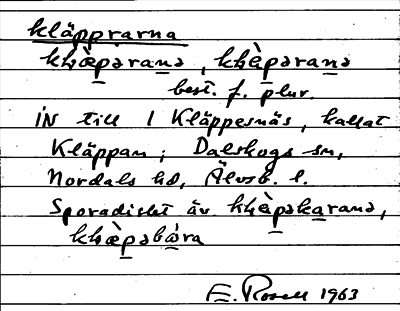 kläpprarna
khæ̀pərana, khɛ̀pərana
best. f. plur.
IN till 1 Kläppesnäs, kallat
Kläppan; Dalskogs sn,
Nordals hd, Älvsb. l.
Sporadiskt äv. khɛ̀pəkarana,
khæpəbæ̀ra
E. Rosell 1963